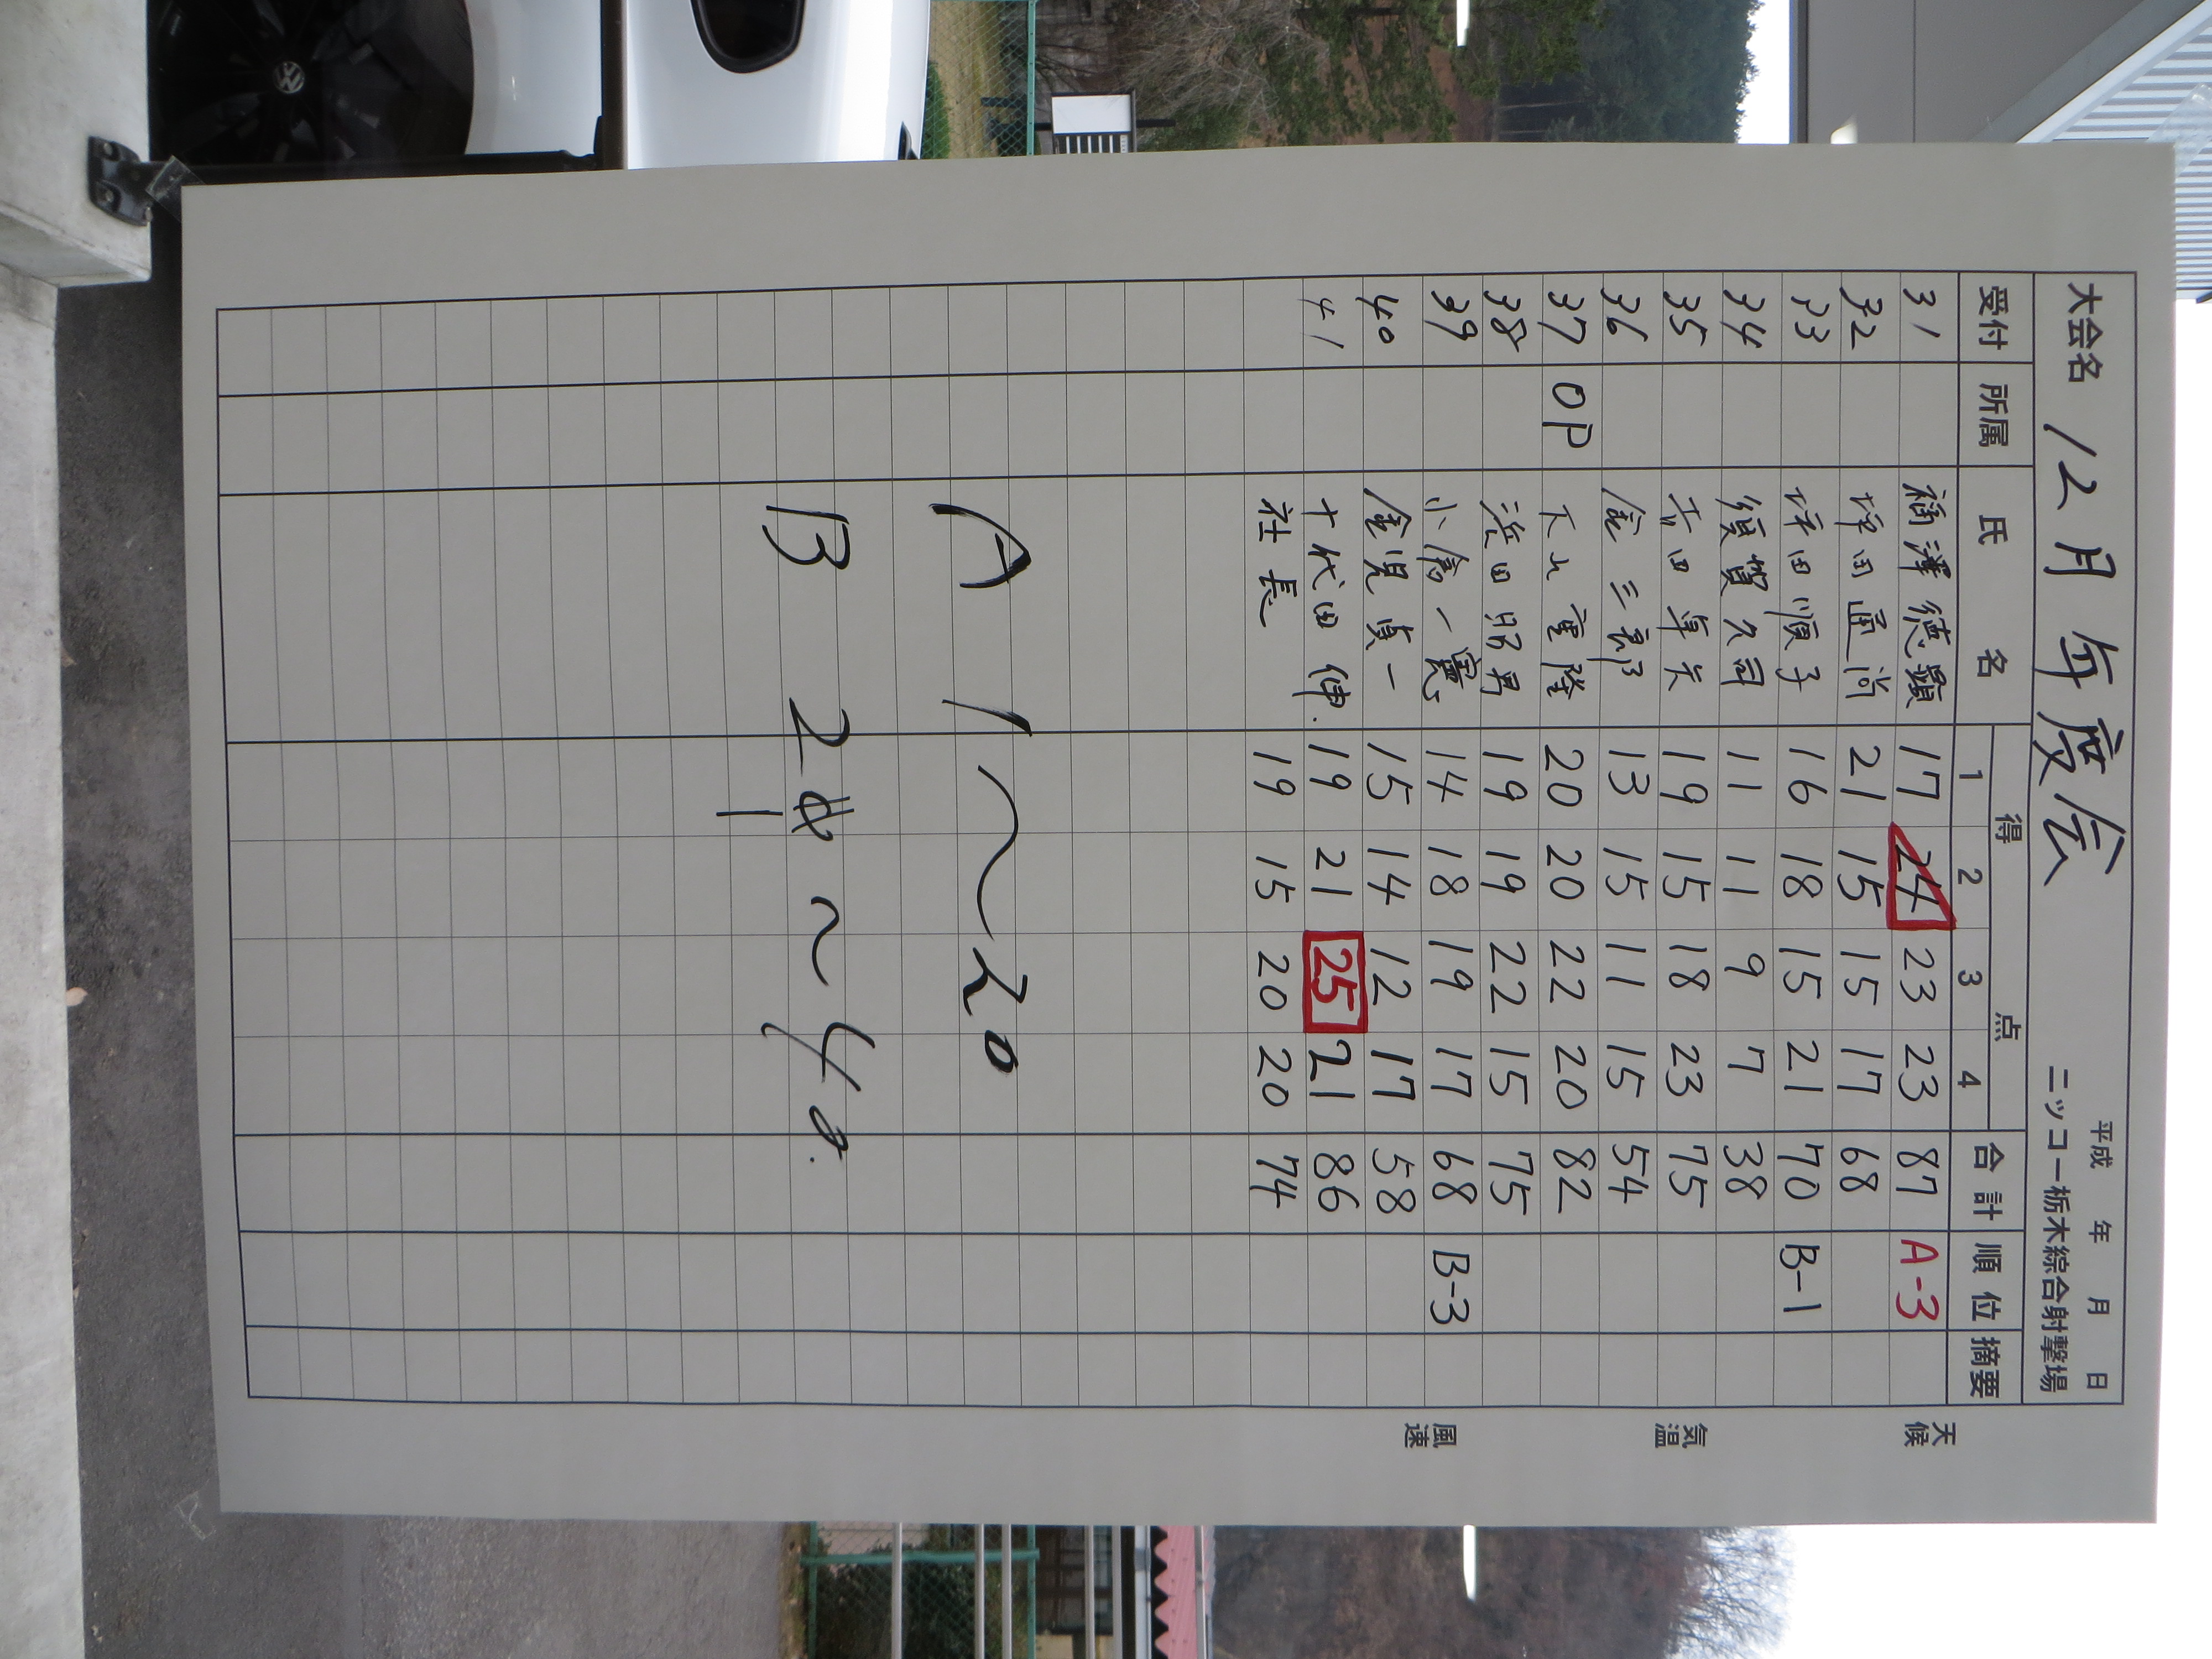 大会名 12月年度会
平成 年 月 日
ニッコー栃木綜合射撃場
受付 所属 氏 名 得 点 合計 順位 摘要
1 2 3 4
31 福澤徳顕 17 24 23 23 87 A-3
32 坪田通尚 21 15 15 17 68
33 坪田順子 16 18 15 21 70 B-1
34 須賀久司 11 11 9 7 38
35 吉田 19 15 18 23 75
36 金三郎 13 15 11 15 54
37 OP 重隆 20 20 22 20 82
38 田昭男 19 19 22 15 75
39 小倉一憲 14 18 19 17 68 B-3
40 金児貞一 15 14 12 17 58
41 十代田 伸 19 21 25 21 86
社長 19 15 20 20 74
A 1〜20
B 21〜40
天候
気温
風速